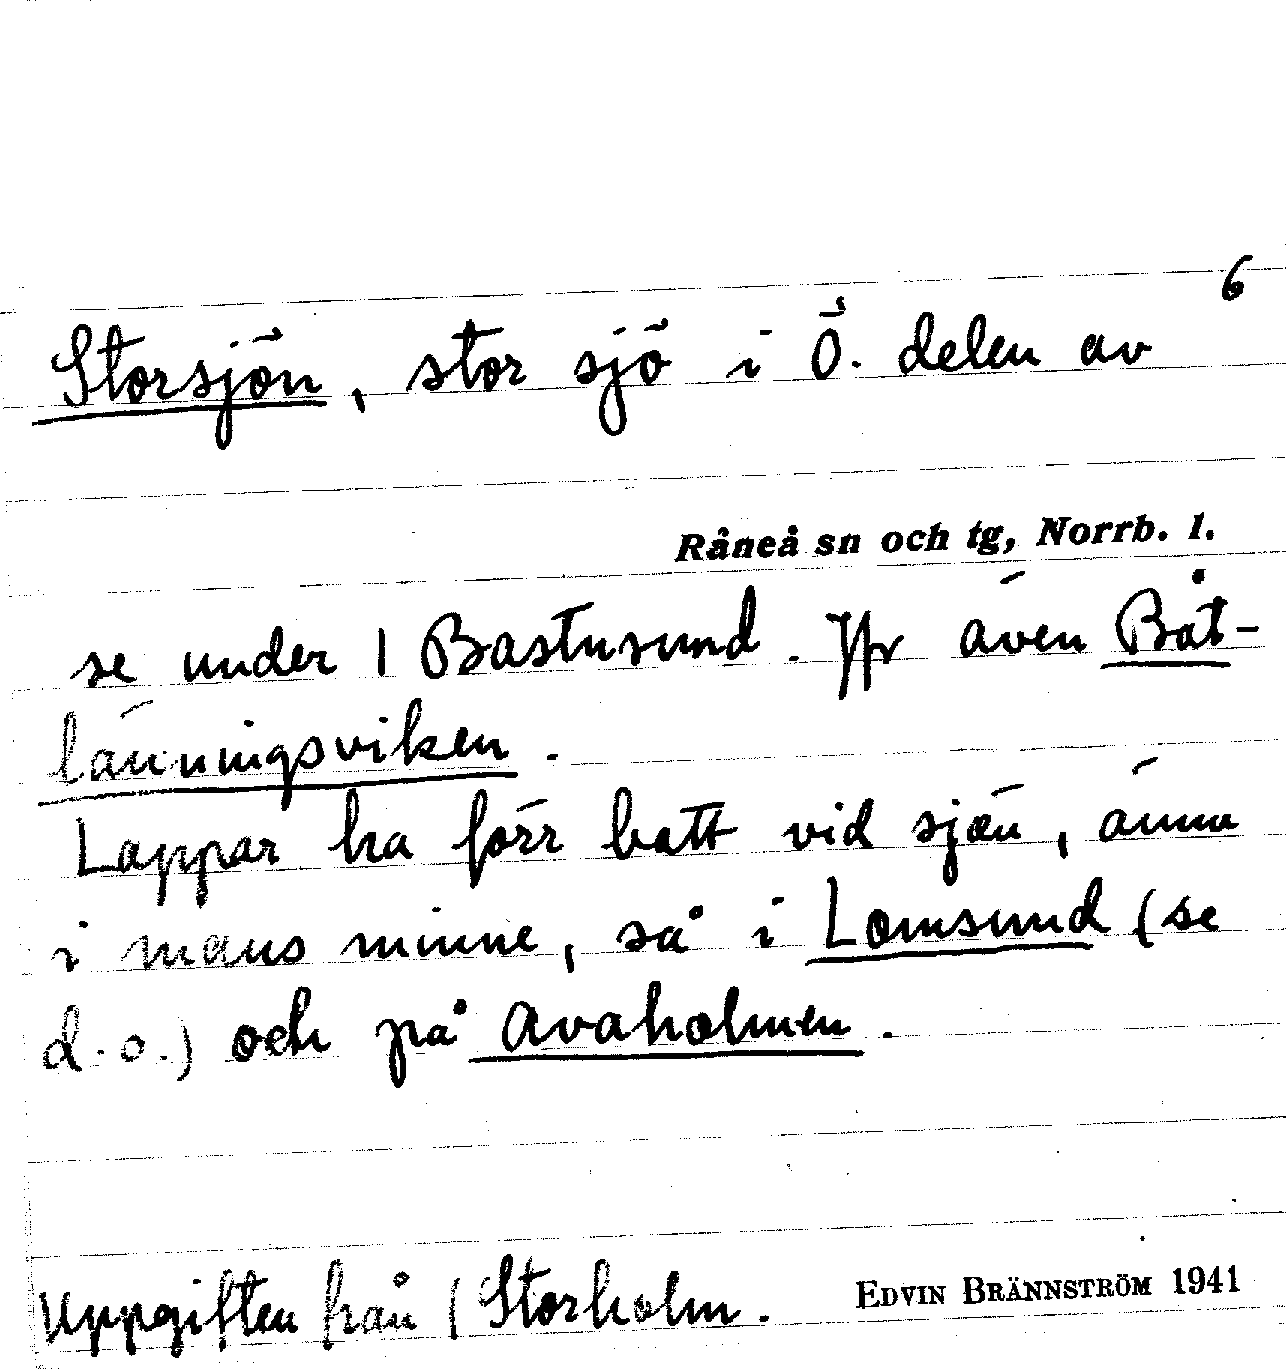 6
Storsjön, stor sjö i Ö. delen av
Råneå sn och tg, Norrb. l.
se under 1 Bastusund. Jfr även Båt-
länningsviken.
Lappar ha förr bott vid sjön, ännu
i mans minne, så i Lomsund (se
d.o.) och på Avaholmen.
Uppgiften från 1 Storholm. EDVIN BRÄNNSTRÖM 1941